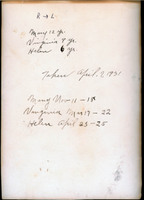 R → L.
Mary 12 yr.
Virginia 8 yr.
Helen 6 yr.
Taken April, 7, 1931
Mary Nov - 11 - 18
Virginia 17 - 22
Helen April 23 - 25